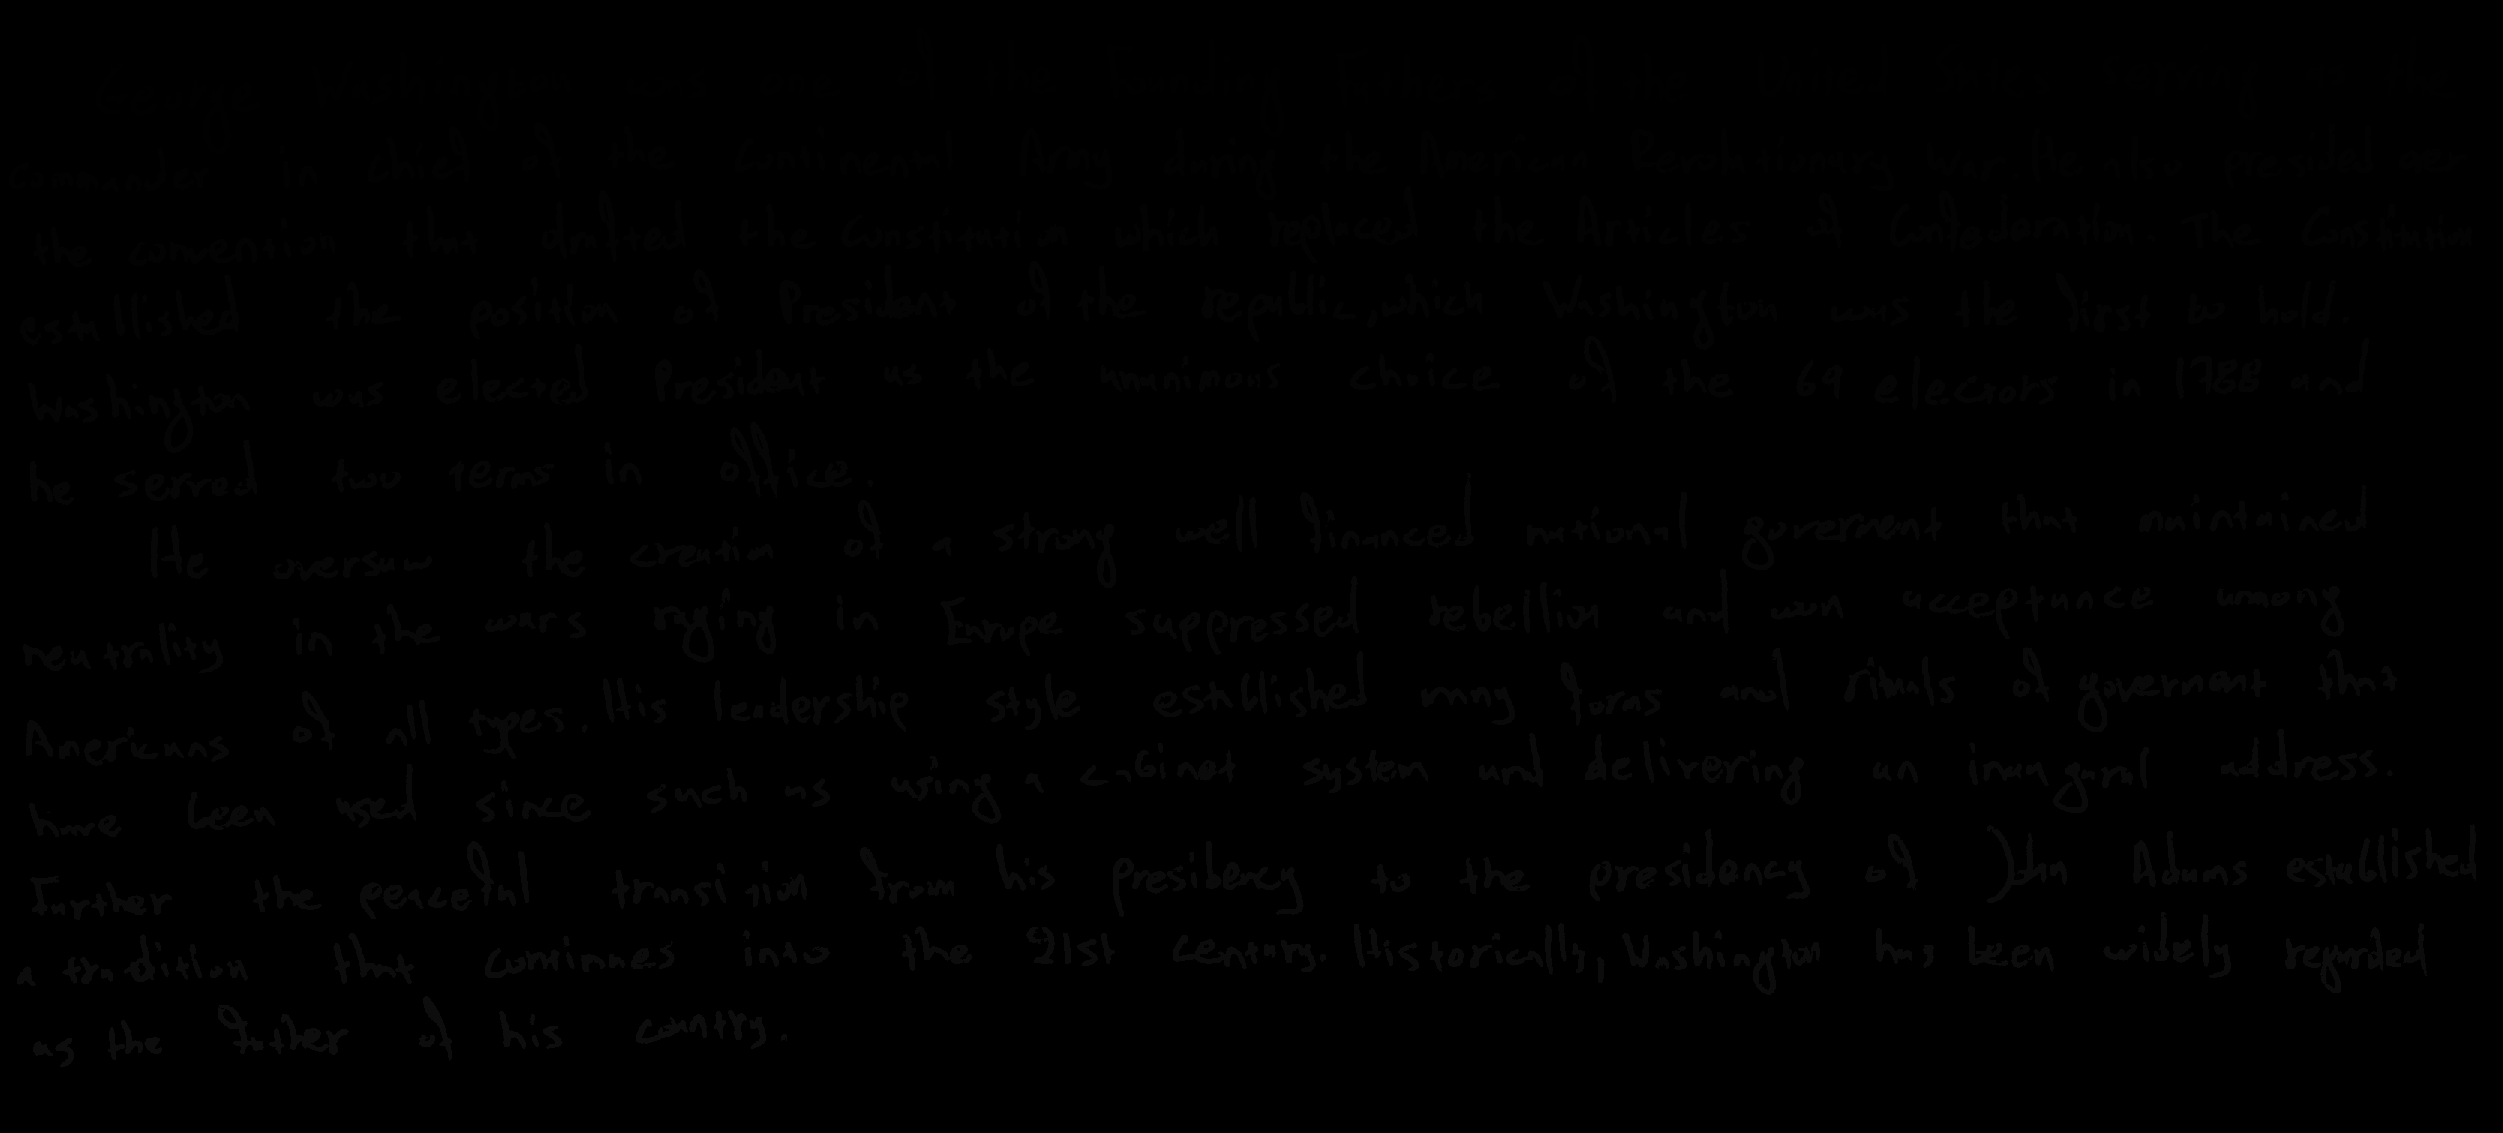 George Washington was one of the Founding Fathers of the United States serving as the
commander in chief of the Continental Army during the American Revolutionary War He also presided over
the convention that drafted the Constitution which replaced the Articles of Confederation. The Constitution
established the position of President of the republic, which Washington was the first to hold.
Washington was elected President as the unanimous choice of the 69 electors in 1788 and
he served two terms in office.
He oversaw the creation of a strong well financed national goverment that maintained
neutrality in the wars raging in Europe suppressed rebellion and won acceptance among
Americans of all types. His leadership style established many forms and rituals of goverment that
have been used since such as using a cabinet system and delivering an inaugural address.
Further the peaceful transition from his presidency to the presidency of John Adams established
a tradition that continues into the 21st century. Historically, Washington has been widely regarded
as the father of his country.